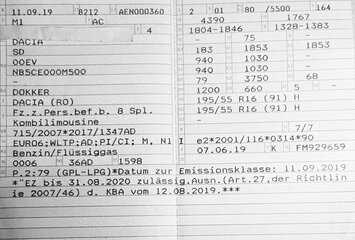 11.09.19 8212 AEN000360
M1 AC
4
DACIA
SD
OOEV
NB5CE000M500
-
DOKKER
DACIA (RO)
Fz.z.Pers.bef.b. 8 Spl.
Kombilimousine
715/2007*2017/1347AD
EURO6;WLTP;AD;PI/CI; M, N1 I
Benzin/Flüssiggas
0006 36AD 1598
P.2:79 (GPL-LPG)*Datum zur Emissionsklasse: 11.09.2019
*"EZ bis 31.08.2020 zulässig.Ausn.(Art.27,der Richtlin
ie 2007/46) d. KBA vom 12.08.2019.***
2 01 80 /5500 164
4390 1767
1804-1846 1328-1383
- 75 -
183 1853 1853
940 1030 -
940 1030 -
79 3750 68
1200 660 5 -
195/55 R16 (91) H
195/55 R16 (91) H
-
7/7
e2*2001/116*0314*90
07.06.19 K FM929659